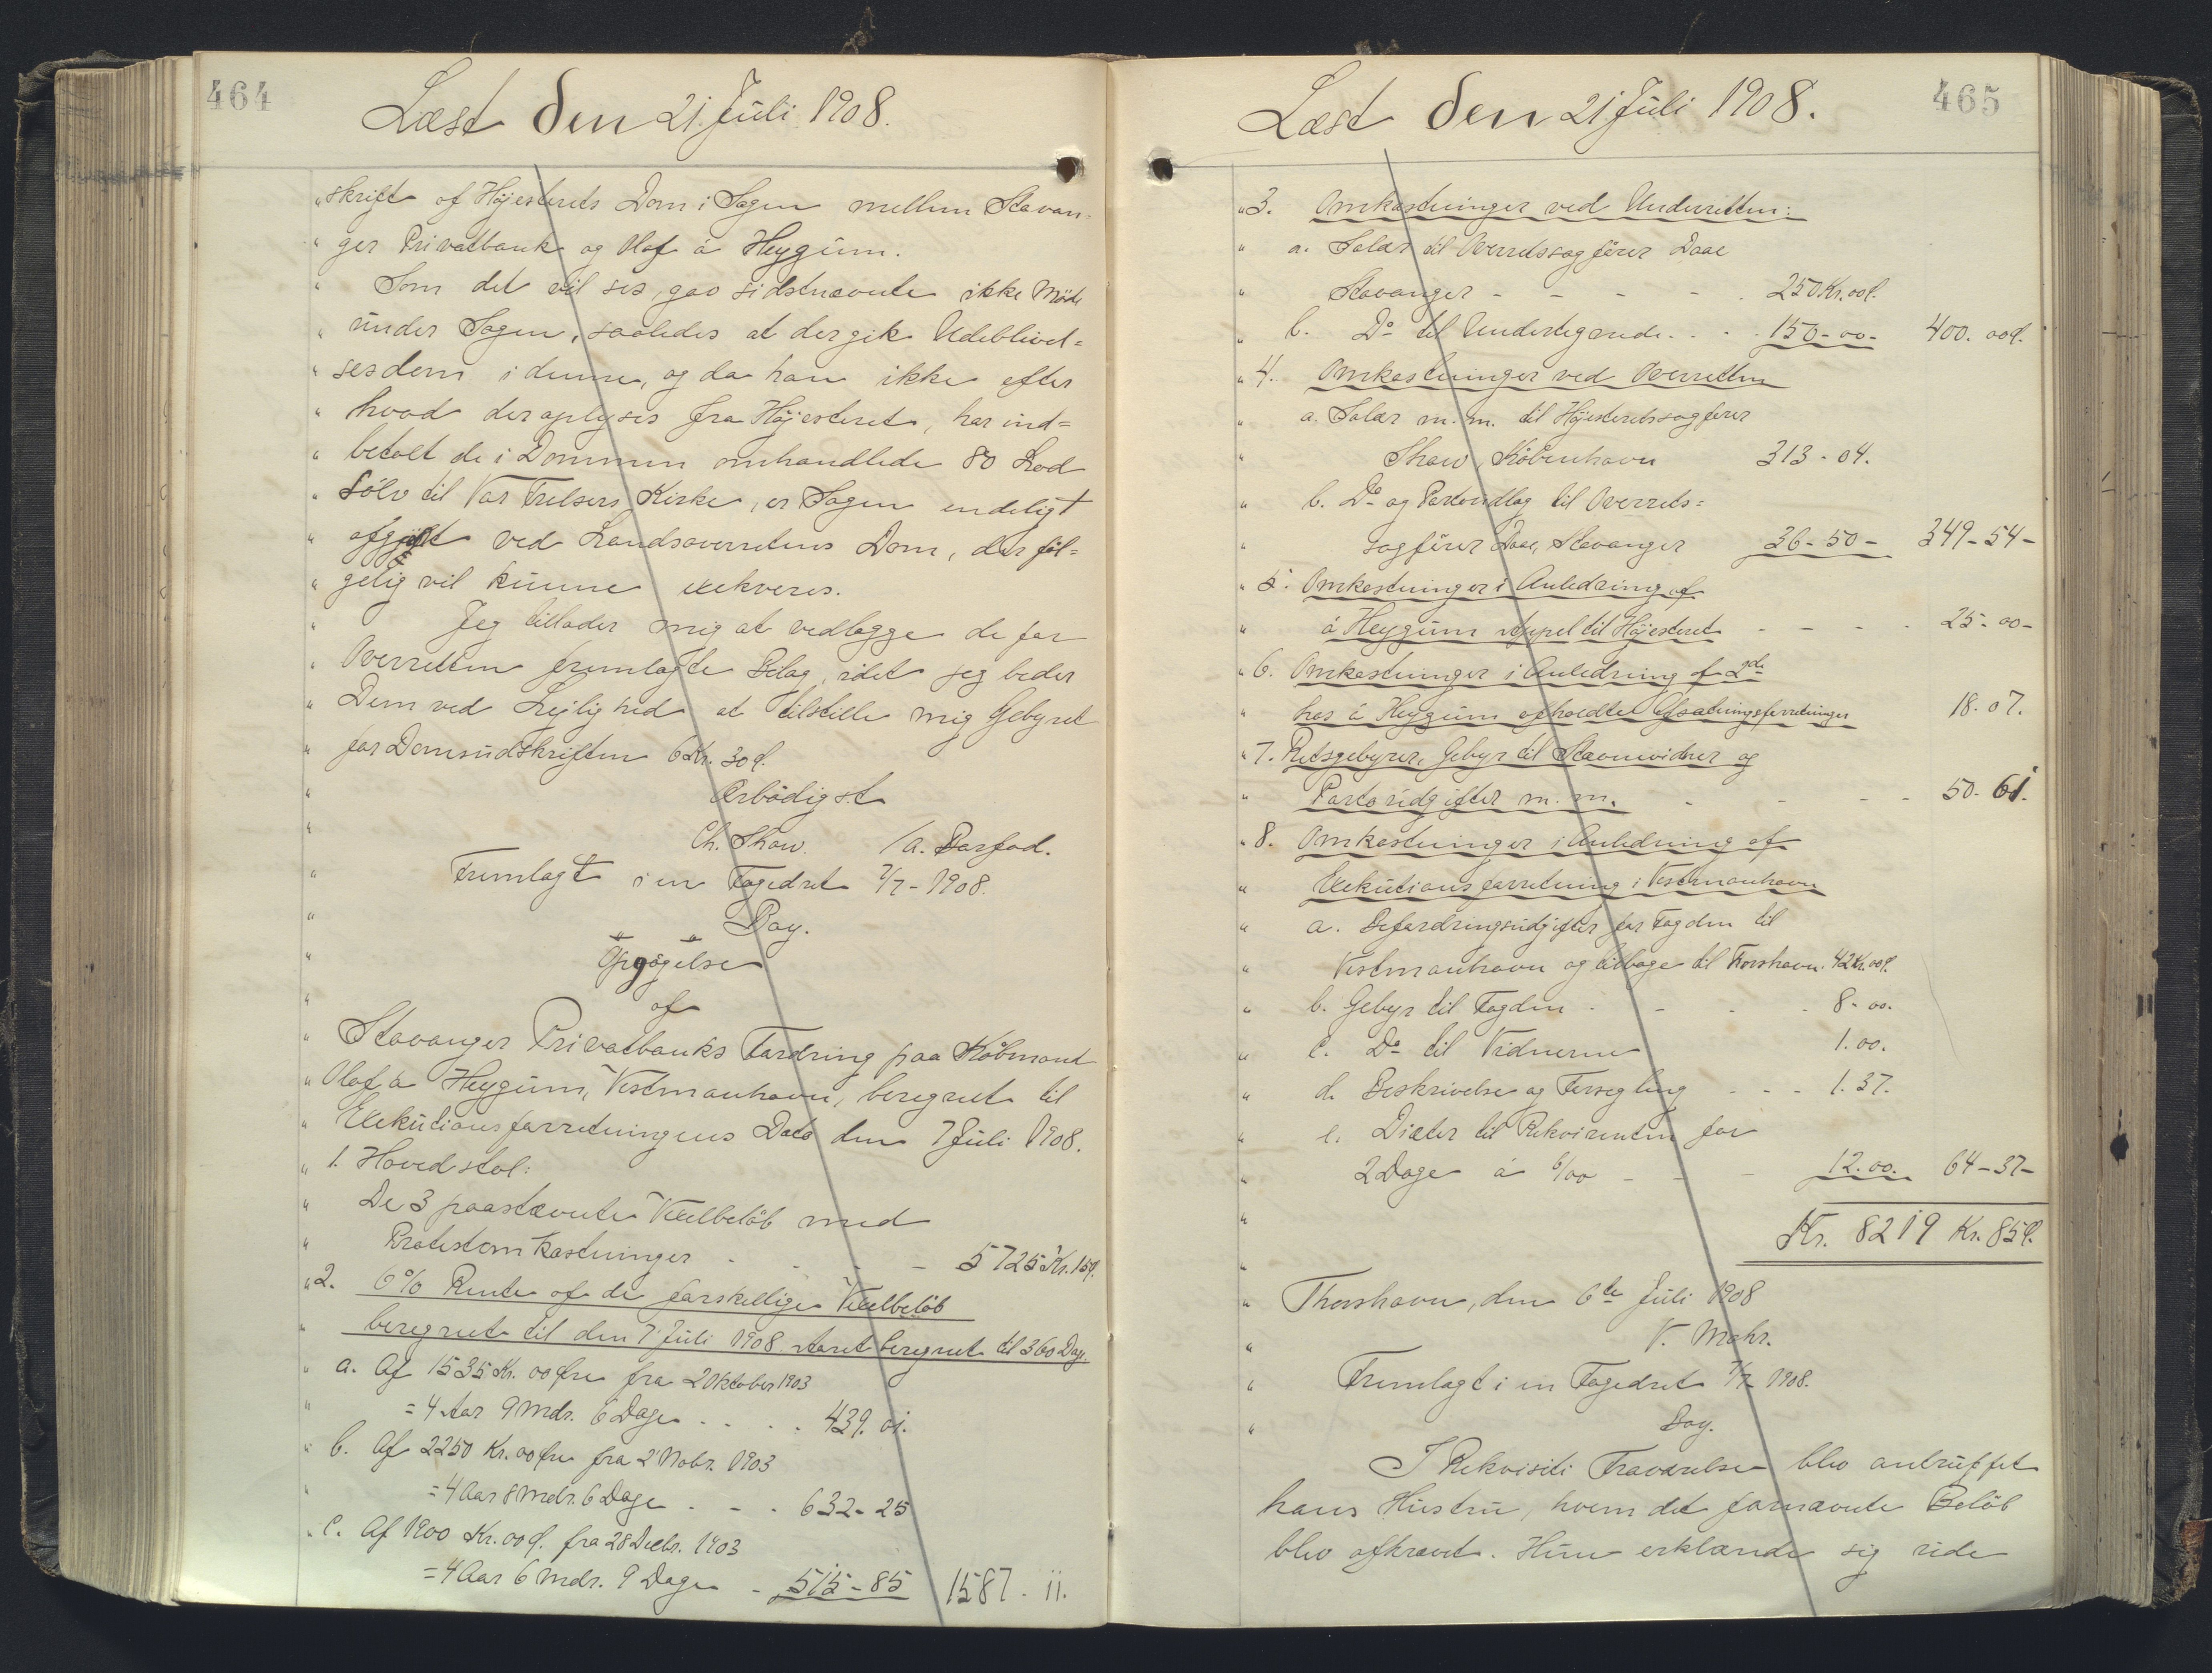 464
Læst den 21. Juli 1908.
"skrift af Höjesterets Dom i Sagen mellem Stavan-
" ger Privatbank og Olaf á Heygum.
" Som det vil ses, gav sidstnævnte ikke Möde
" under Sagen, saaledes at der gik Udeblivel=
" sesdom i denne, og da han ikke efter
" hvad der oplyses fra Höjesteret, har ind=
" betalt de i Dommen omhandlede 80 Lod
" Sölv til Vor Frelsers Kirke, er Sagen endeligt
" afgjort ved Landsoverretens Dom, der föl=
" gelig vil kunne exekveres.
" Jeg tillader mig at vedlægge de for
" Overretten fremlagte Bilag, idet jeg beder
" Dem ved Lejlighed at tilstille mig Gebyret
" for Domsudskriften 6 Kr. 30 Ø.
" Ærbödigst
" Ch. Shaw. /A. Barfod.
" Fremlagt i en Fogedret 7/7 - 1908.
" Bay.
" Opgögelse
" af
" Stavanger Privatbanks Fordring paa Köbmand
" Olaf á Heygum, Vestmanhavn, beregnet til
" Exekutionsforretningens Dato den 7 Juli 1908.
" 1. Hovedstol:
" De 3 paastævnte Vexelbelöb med
" Protestomkostninger - - - - 5725 Kr. 15 Ø.
" 2. 6% Rente af de forskellige Vexelbelöb
" beregnet til den 7 Juli 1908 Aaret beregnet til 360 Dage.
" a. Af 1535 Kr. 00 Øre fra 2 Oktober 1903
" = 4 Aar 9 Mdr. 6 Dage - - - - 439. 01.
" b. Af 2250 Kr. 00 Øre fra 2 Nobr. 1903
" = 4 Aar 8 Mdr. 6 Dage - - - 632 - 25
" c. Af 1900 Kr. 00 Ø. fra 28 Decbr. 1903
= 4 Aar 6 Mdr. 9 Dage - 515 - 85 1587 - 11.
465
Læst den 21 Juli 1908.
" 3. Omkostninger ved Underretten:
" a. Salær til Overretssagförer Daae
" Stavanger - - - - - 250 Kr. 00 Ø.
" b. Do til Undertegnede. - - 150 - 00 - 400. 00 Ø.
" 4. Omkostninger ved Overretten
" a. Salær m. m. til Höjesteretssagförer
" Shaw, Köbenhavn 313 - 04.
" b. Do og Portoudlæg til Overrets=
" sagförer Daae, Stavanger 36 - 50 - 349 - 54 -
" 5. Omkostninger i Anledning af
" á Heygums Appel til Höjesteret - - - - 25 - 00 -
" 6. Omkostninger i Anledning af 2de
" hos á Heygum afholdte Afsætningsforretninger 18. 07.
" 7. Retsgebyrer, Gebyr til Stævnevidner og
" Portoudgifter m. m. - - - - 50 - 61.
" 8. Omkostninger i Anledning af
" Exekutionsforretning i Vestmanhavn
" a. Befordringsudgifter for Fogden til
" Vestmanhavn og tilbage til Torshavn. 42 Kr. 00 Ø.
" b. Gebyr til Fogden - - - - 8 - 00.
" c. Do til Vidnerne 1. 00.
" d. Beskrivelse og Forsegling - - - 1. 37.
" e. Diæter til Rekvirenten for
" 2 Dage á 6/00 - - - 12. 00. 64 - 37 -
" Kr. 8219 Kr. 85 Ø.
" Thorshavn, den 6te Juli 1908
" V. Mohr.
" Fremlagt i en Fogedret 7/7 1908.
" Bay.
I Rekvisiti Fraværelse blev antruffet
hans Hustru, hvem det fornævnte Belöb
blev afkrævet. Hun erklærede sig ude